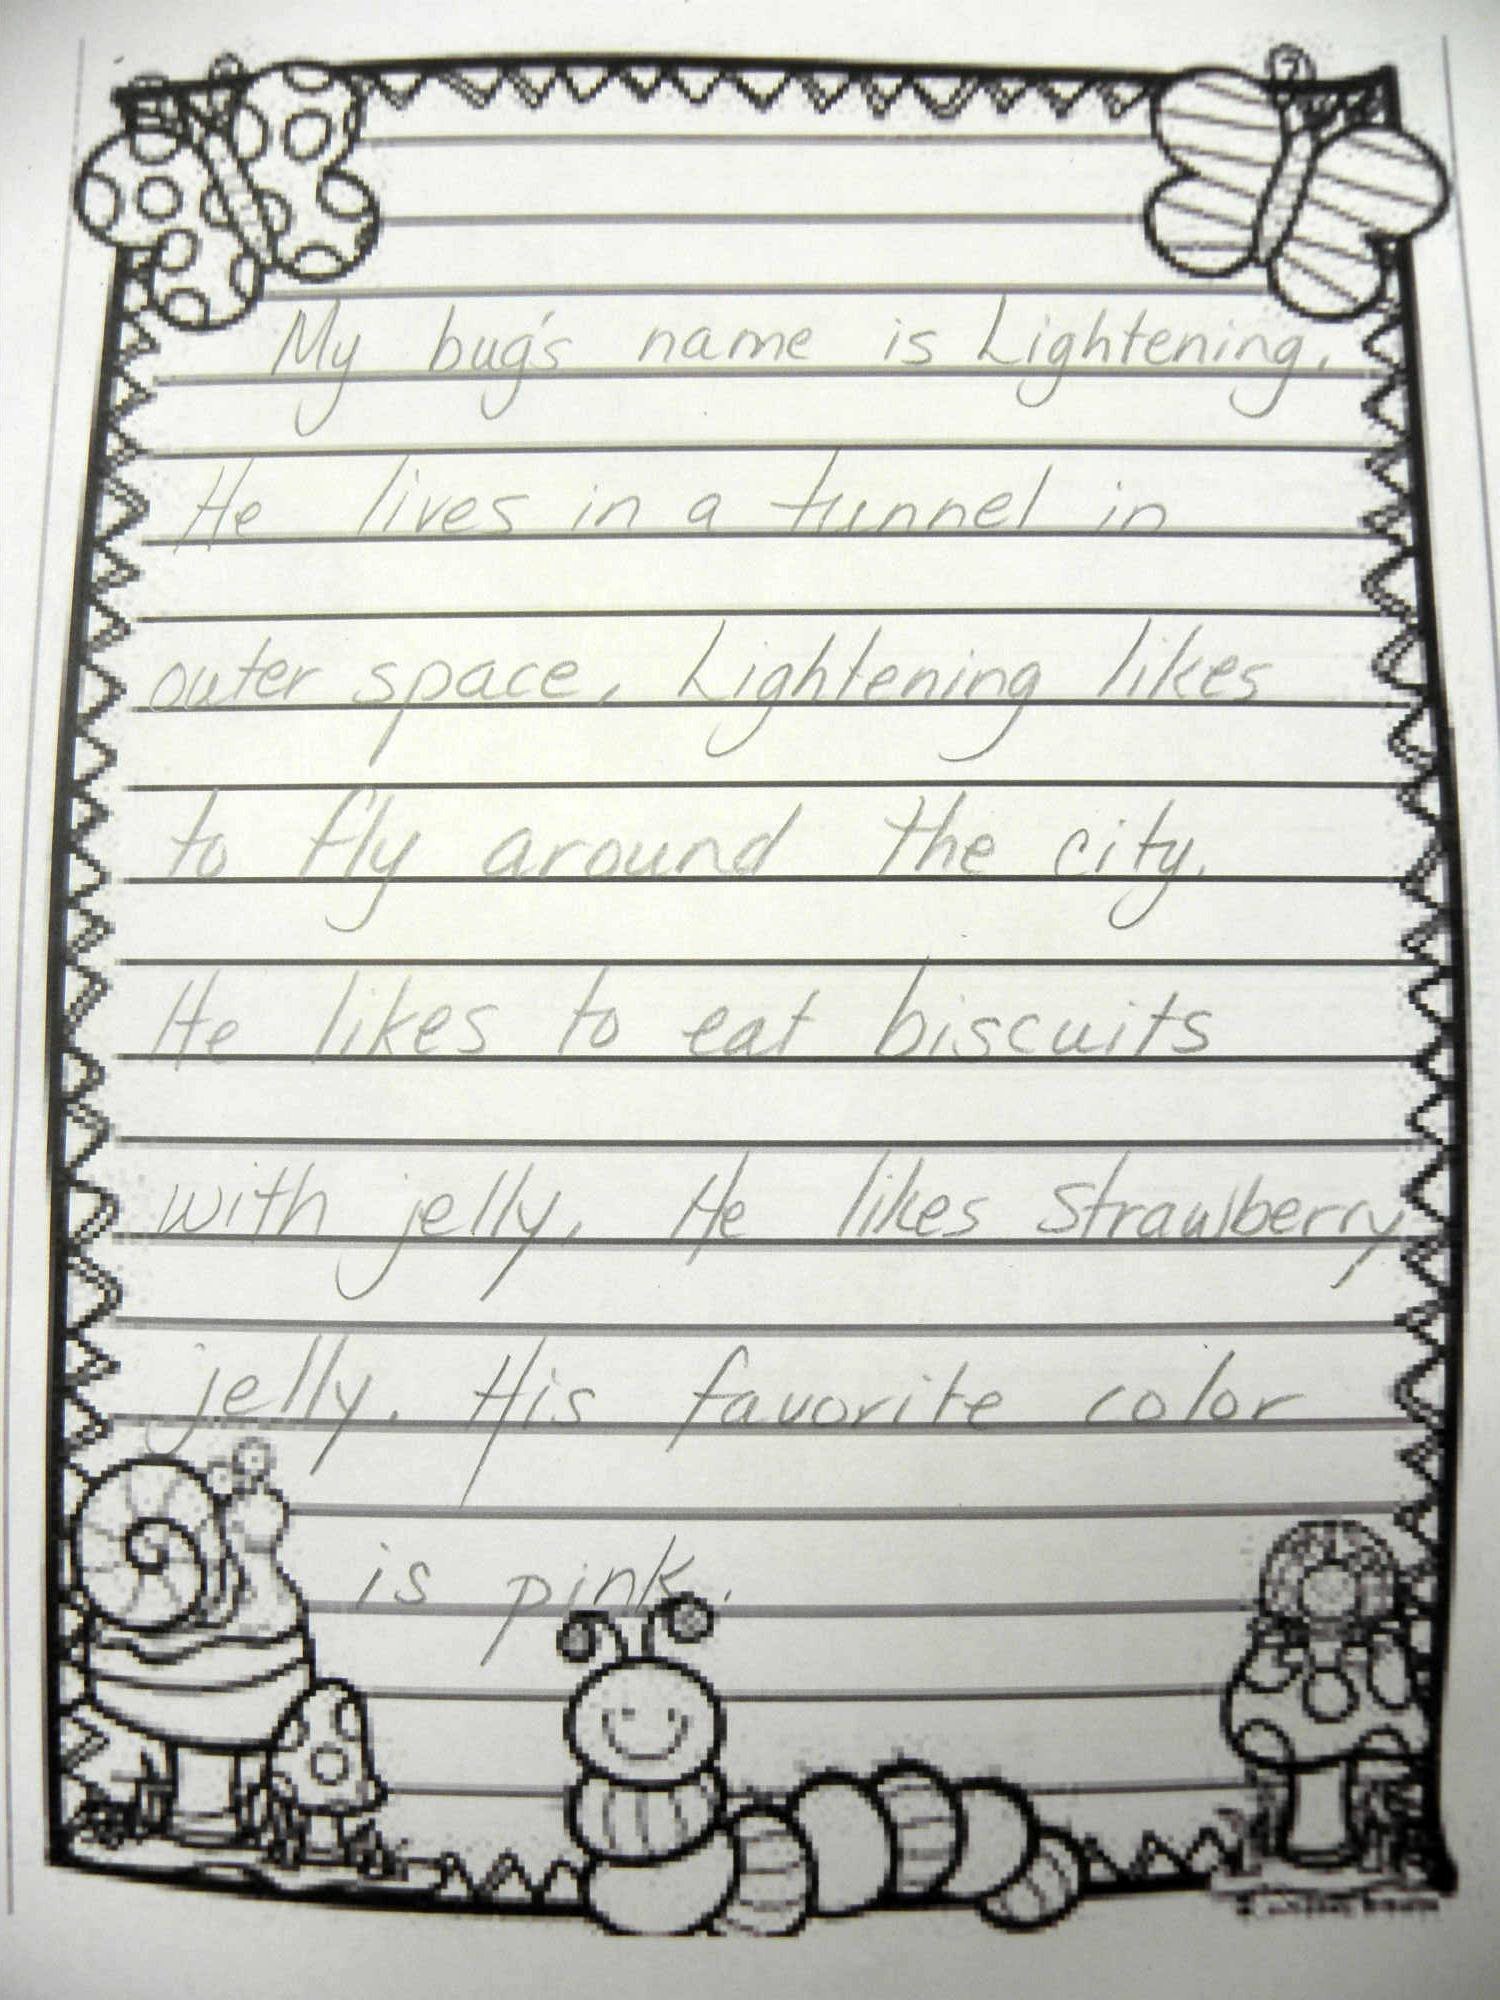 My bug's name is Lightening.
He lives in a tunnel in
outer space. Lightening likes
to fly around the city.
He likes to eat biscuits
with jelly. He likes strawberry
jelly. His favorite color
is pink.